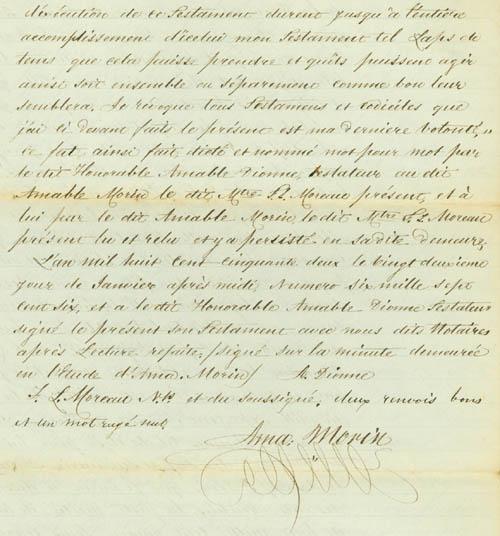 d'exécution de ce Testament durent jusqu'à l'entière
accomplissement d'icelui mon Testament tel Laps de
tems que cela puisse prendre et qu'ils puissent agir
ainsi soit ensemble ou séparément comme bon leur
semblera. Je révoque tous Testamens et codiciles que
j'ai ci devant faits le présent est ma dernière volonté,,
ce fut ainsi fait, dicté et nommé mot pour mot par
le dit Honorable Amable Dionne, testateur au dit
Amable Morin le dit Mtre J. L. Moreau présent, et à
lui par le dit Amable Morin, le dit Mtre J. L. Moreau
présent lu et relu et y a persisté en sa dite demeure.
L'an mil huit cent cinquante deux le vingt deuxième
jour de Janvier après midi, Numero six mille sept
cent six, et a le dit Honorable Amable Dionne Testateur
signé le présent son Testament avec nous dit Notaires
après Lecture refaite, (signé sur la minute demeurée
en l'Etude d'Ama. Morin) A. Dionne
J. L. Moreau N.P. et du soussigné, deux renvois bons
et un mot rayé nul
Ama. Morin